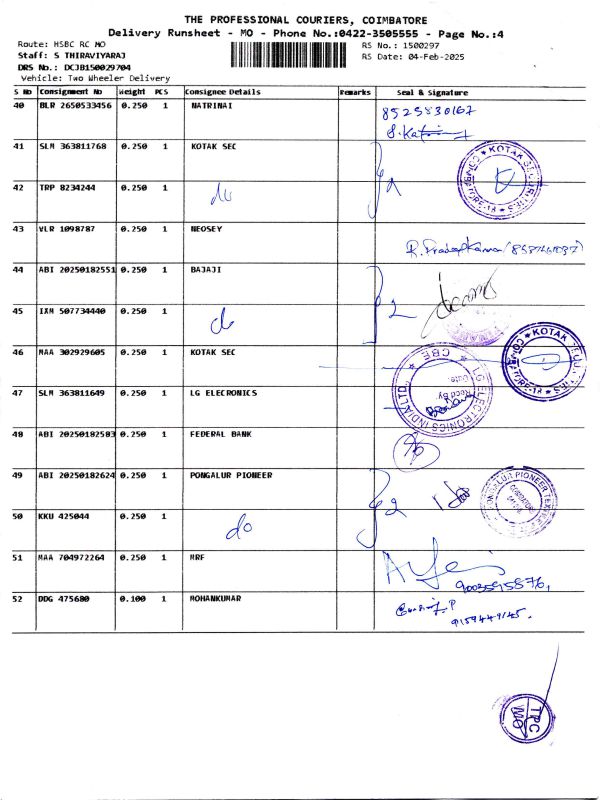 THE PROFESSIONAL COURIERS, COIMBATORE
Delivery Runsheet - MO - Phone No.:0422-3505555 - Page No.:4
Route: HSBC RC MO RS No.: 1500297
Staff: S THIRAVIYARAJ RS Date: 04-Feb-2025
DRS No.: DCJB150029704
Vehicle: Two Wheeler Delivery
S No Consignment No Weight PCS Consignee Details Remarks Seal & Signature
40 BLR 2650533456 0.250 1 NATRINAI
8525830167
41 SLM 363811768 0.250 1 KOTAK SEC
KOTAK SECURITIES
42 TRP 8234244 0.250 1 do
2
43 VLR 1098787 0.250 1 NEOSEY
44 ABI 20250182551 0.250 1 BAJAJI
2
45 IXM 507734440 0.250 1 do
46 MAA 302929605 0.250 1 KOTAK SEC
KOTAK
CBE
47 SLM 363811649 0.250 1 LG ELECRONICS
LG ELECTRONICS INDIA LTD
48 ABI 20250182583 0.250 1 FEDERAL BANK
49 ABI 20250182624 0.250 1 PONGALUR PIONEER
2
PONGALUR PIONEER
50 KKU 425044 0.250 1 do
51 MAA 704972264 0.250 1 MRF
52 DDG 475680 0.100 1 MOHANKUMAR
9159449145.
TPC
MO